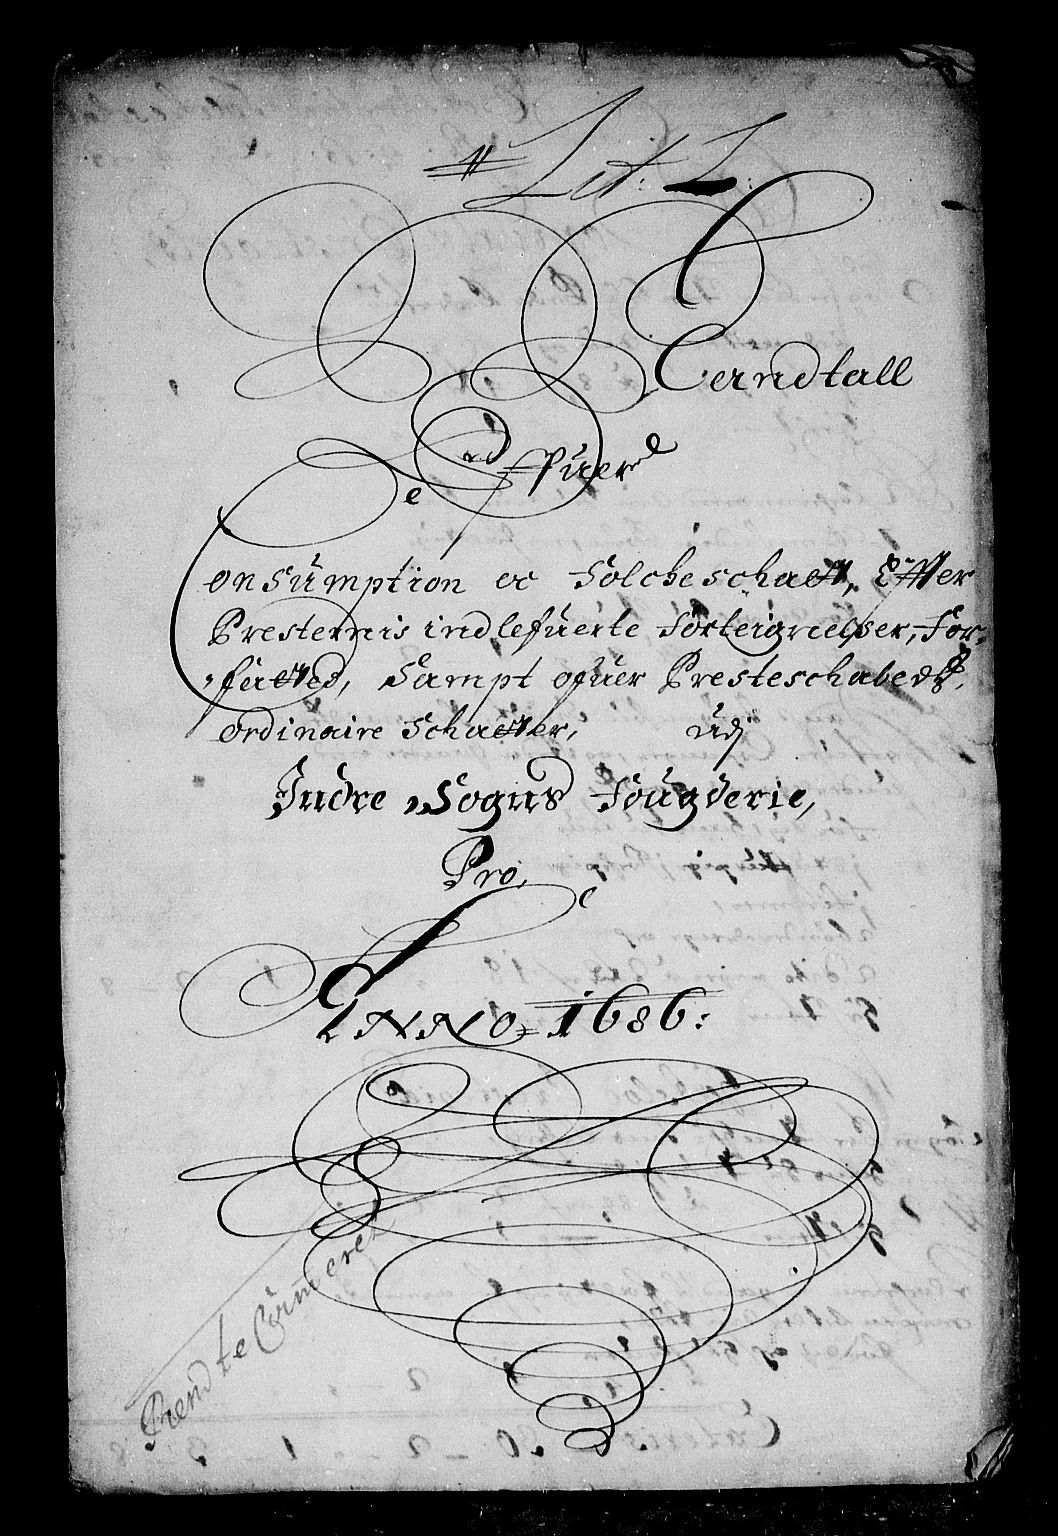 # Lit: L:
Extractt
Offuer
Consumption oc Folcheschatt, Effter
Presternis indlefuerte Forteignielser, For-
fatted, Sampt ofuer Presteschabedtz
ordinaire Schatter, udj
Indre Sogns Fougderie,
Pro.
ANNO 1686: